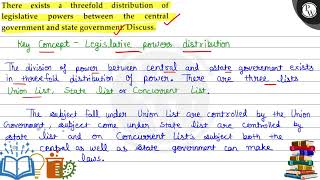 There exists a threefold distribution of
legislative powers between the central
government and state government. Discuss.
Key Concept - Legislative powers distribution
The division of power between central and state government exists
in threefold distribution of power. There are three lists
Union List, State list or Concurrent List.
The subject fall under Union List are controlled by the Union
Government, subject come under State List are controlled by
state list and on Concurrent List's subject both the
central as well as state government can make
laws.